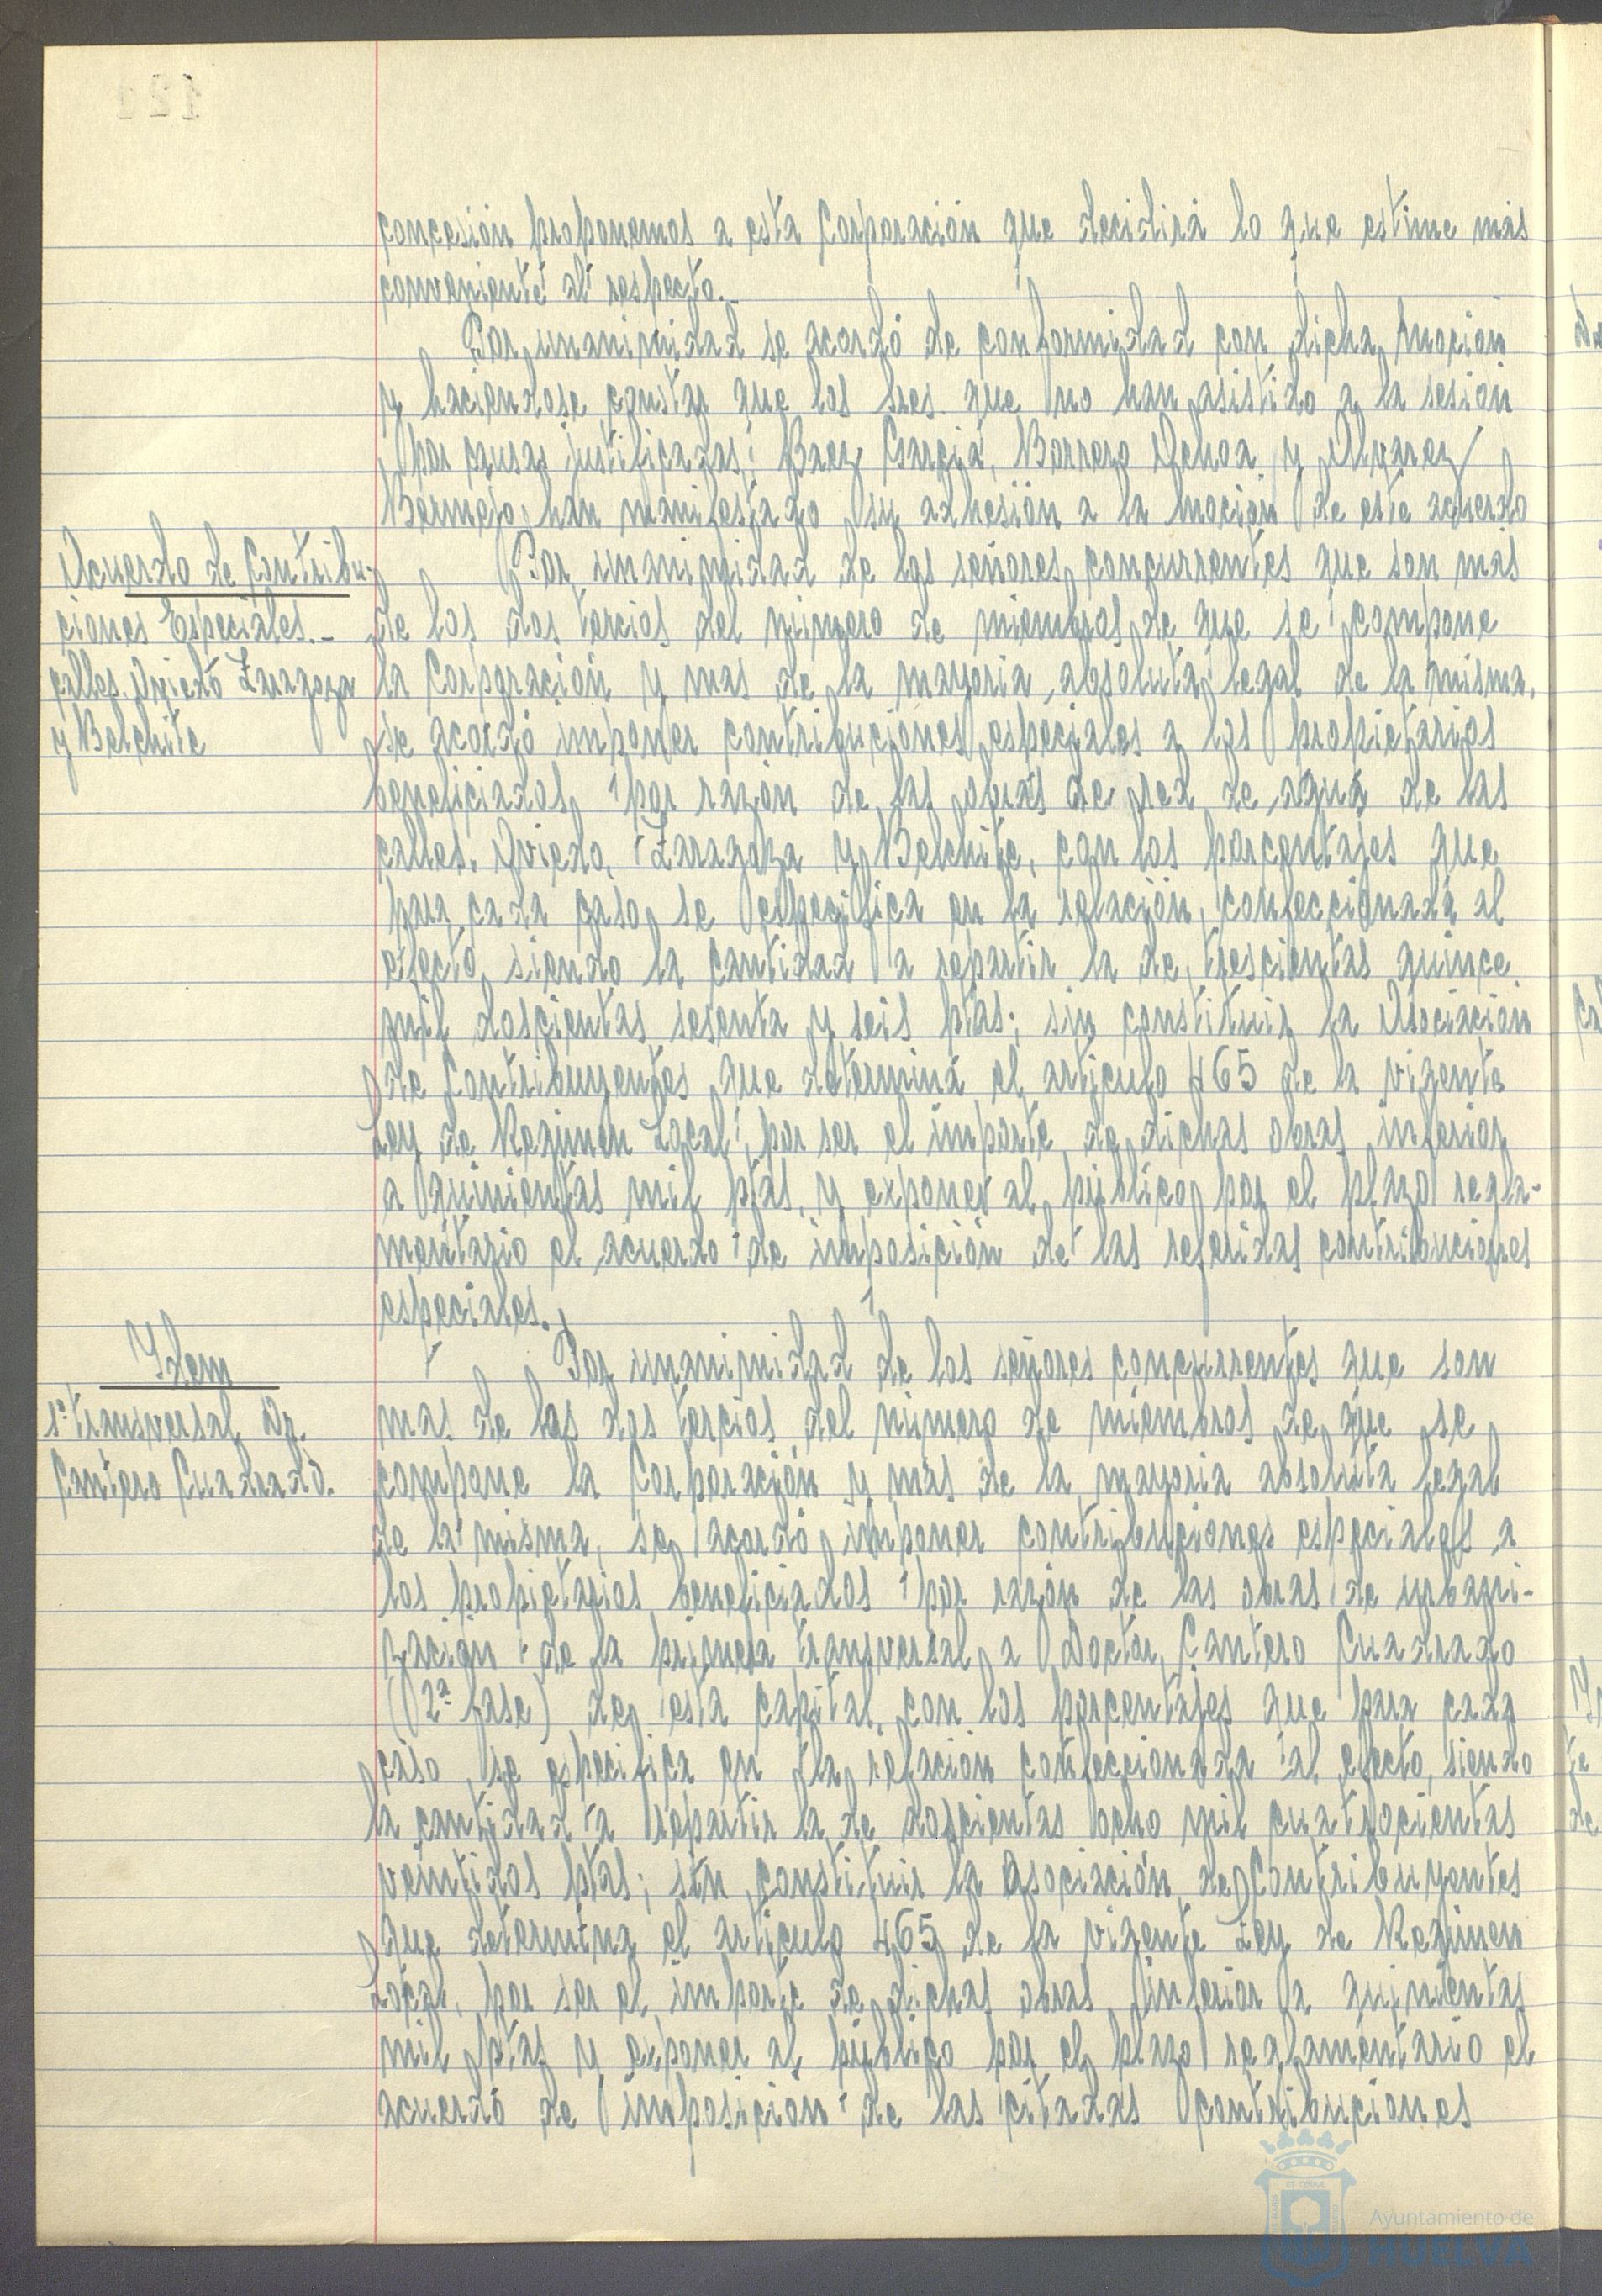 concesión proponemos a esta Corporación que decidirá lo que estime más
conveniente al respecto.-
Por unanimidad se acordó de conformidad con dicha moción
y haciendose constar que los Sres. que no han asistido a la sesión
por causas justificadas; Baez García, Borrero Ochoa y Alvarez
Bermejo, han manifestado su adhesión a la moción de este acuerdo
Acuerdo de Contribu-
ciones Especiales.-
calles. Oviedo Zaragoza
y Belchite
Por unanimidad de los señores concurrentes que son más
de los dos tercios del número de miembros de que se compone
la Corporación y mas de la mayoria absoluta legal de la misma,
se acordó imponer contribuciones especiales a los propietarios
beneficiados por razón de las obras de red de agua de las
calles. Oviedo, Zaragoza y Belchite, con los porcentajes que
para cada caso se especifica en la relación confeccionada al
efecto, siendo la cantidad a repartir la de trescientas quince
mil doscientas sesenta y seis ptas; sin constituir la Asociación
de Contribuyentes que determina el articulo 465 de la vigente
Ley de Regimen Local, por ser el importe de dichas obras inferior
a quinientas mil ptas, y exponer al público por el plazo regla-
mentario el acuerdo de imposición de las referidas contribuciones
especiales.
Idem
1ª transversal Dr.
Cantero Cuadrado.
Por unanimidad de los señores concurrentes que son
mas de los dos tercios del número de miembros de que se
compone la Corporación y más de la mayoria absoluta legal
de la misma, se acordó imponer contribuciones especiales a
los propietarios beneficiados por razón de las obras de urbani-
zación de la primera transversal a Doctor Cantero Cuadrado
(2ª fase) de esta capital, con los porcentajes que para cada
caso se especifica en la relación confeccionada al efecto, siendo
la cantidad a repartir la de doscientas ocho mil cuatrocientas
veintidos ptas; sin constituir la Asociación de Contribuyentes
que determina el articulo 465 de la vigente Ley de Regimen
Local, por ser el importe de dichas obras inferior a quinientas
mil ptas y exponer al público por el plazo reglamentario el
acuerdo de imposición de las citadas contribuciones
Ayuntamiento de
HUELVA